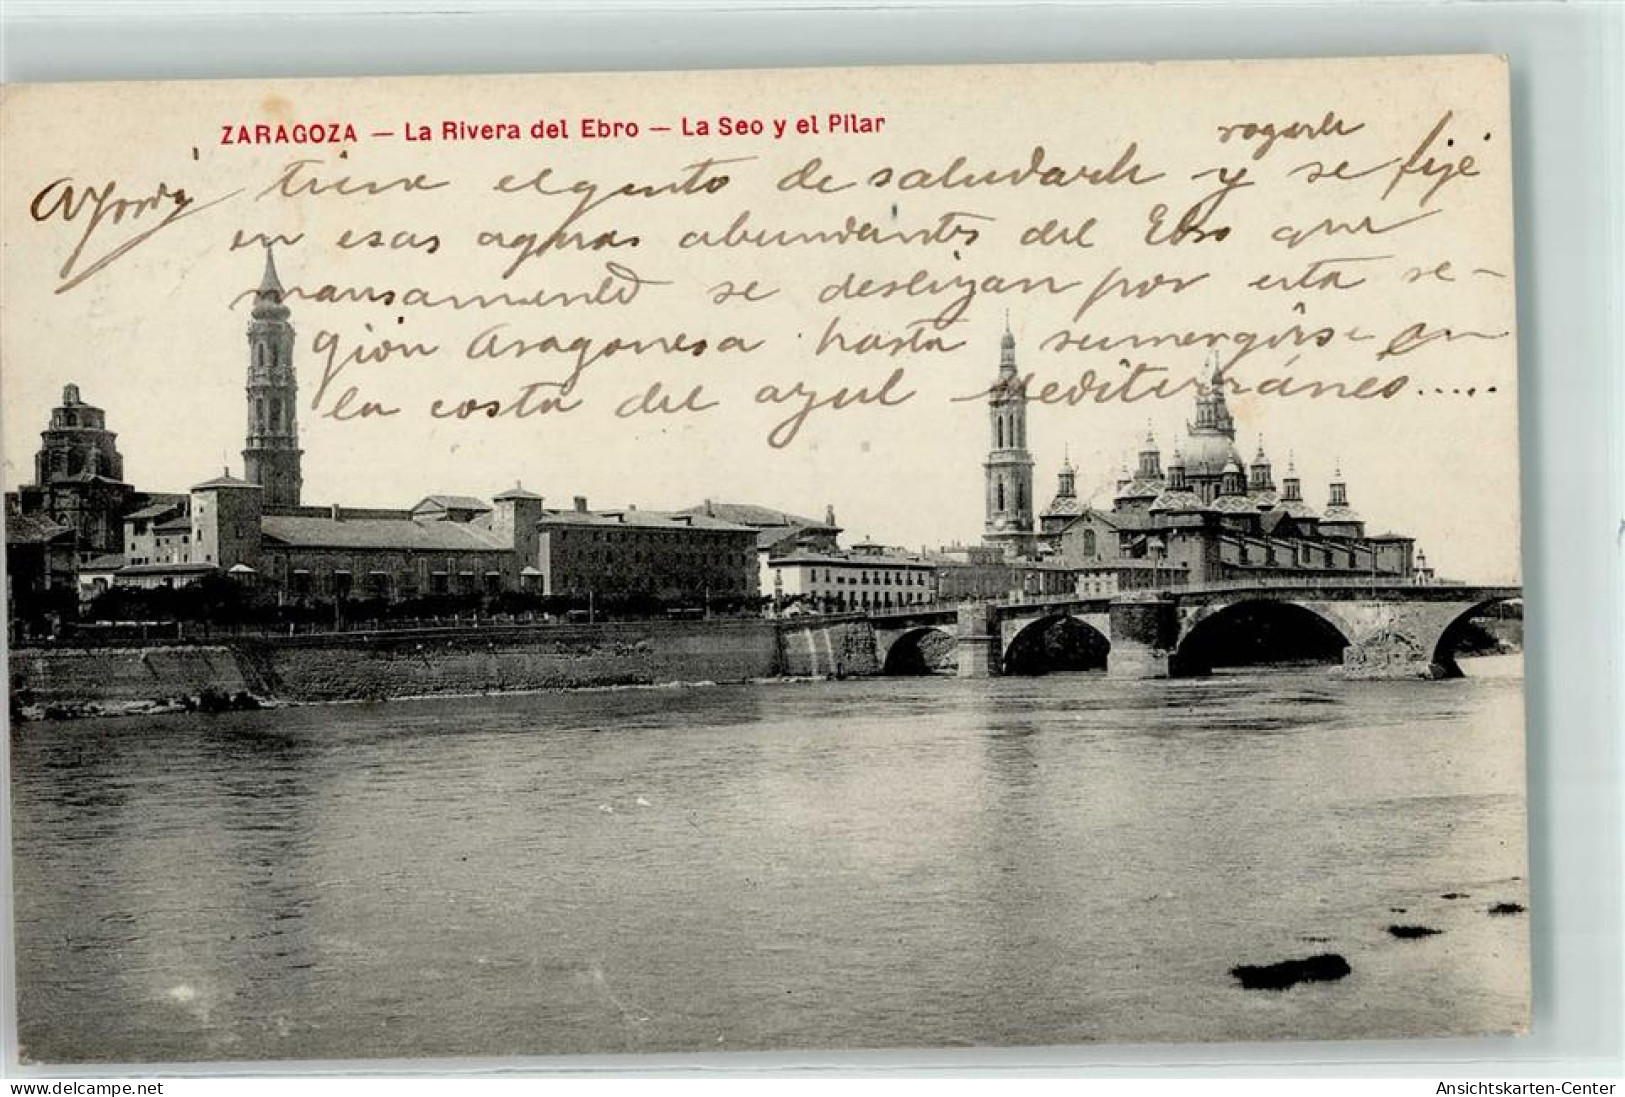 ZARAGOZA — La Rivera del Ebro — La Seo y el Pilar
rogarle
tiene el gusto de saludarle y se fije
en esas aguas abundantes del Ebro que
mansamente se deslizan por esta re-
gion Aragonesa hasta sumergirse en
la costa del azul Mediterráneo.....
www.delcampe.net
Ansichtskarten-Center